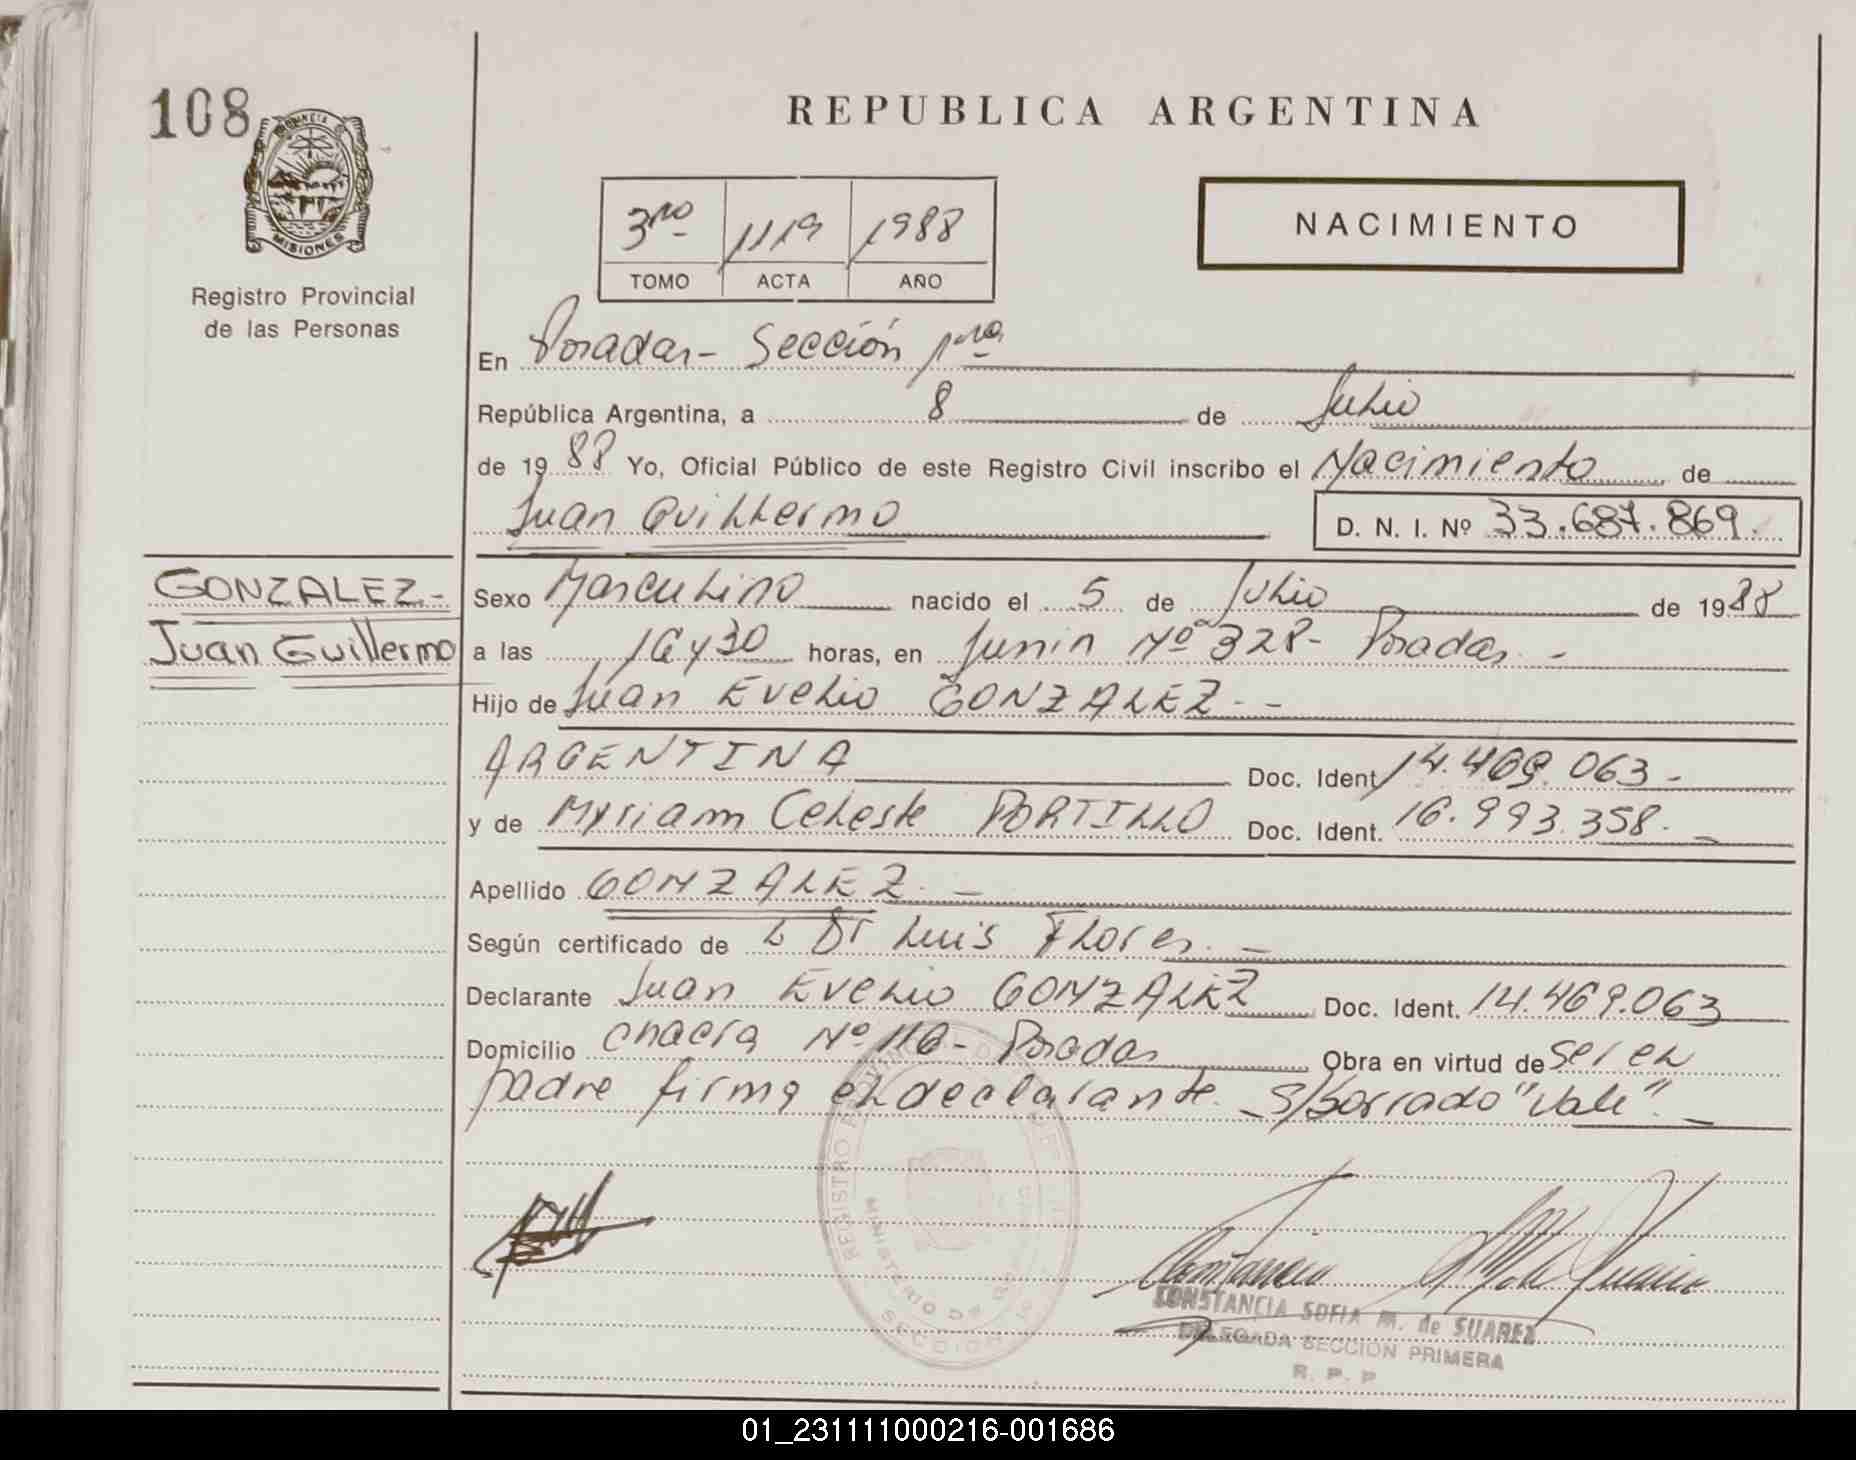 108
PROVINCIA DE
MISIONES
Registro Provincial
de las Personas
REPUBLICA ARGENTINA
3ro 1119 1988
TOMO ACTA AÑO
NACIMIENTO
En Posadas - Sección 1ra
República Argentina, a 8 de Julio
de 1988 Yo, Oficial Público de este Registro Civil inscribo el Nacimiento de
Juan Guillermo D. N. I. Nº 33.687.869.
GONZALEZ -
Juan Guillermo
Sexo Masculino nacido el 5 de Julio de 1988
a las 16 y 30 horas, en Junin Nº 328 - Posadas. -
Hijo de Juan Evelio GONZALEZ - -
ARGENTINA Doc. Ident. 14.469.063 -
y de Myriam Celeste PORTILLO Doc. Ident. 16.993.358. -
Apellido GONZALEZ. -
Según certificado de Dr Luis Flores. -
Declarante Juan Evelio GONZALEZ Doc. Ident. 14.469.063
Domicilio Chacra Nº 116 - Posadas Obra en virtud de ser el
padre firma el declarante. - S/borrado "Vale". -
REGISTRO PROVINCIAL DE
MINISTERIO DE
SECCION
CONSTANCIA SOFIA M. de SUAREZ
DELEGADA SECCION PRIMERA
R. P. P
01_231111000216-001686